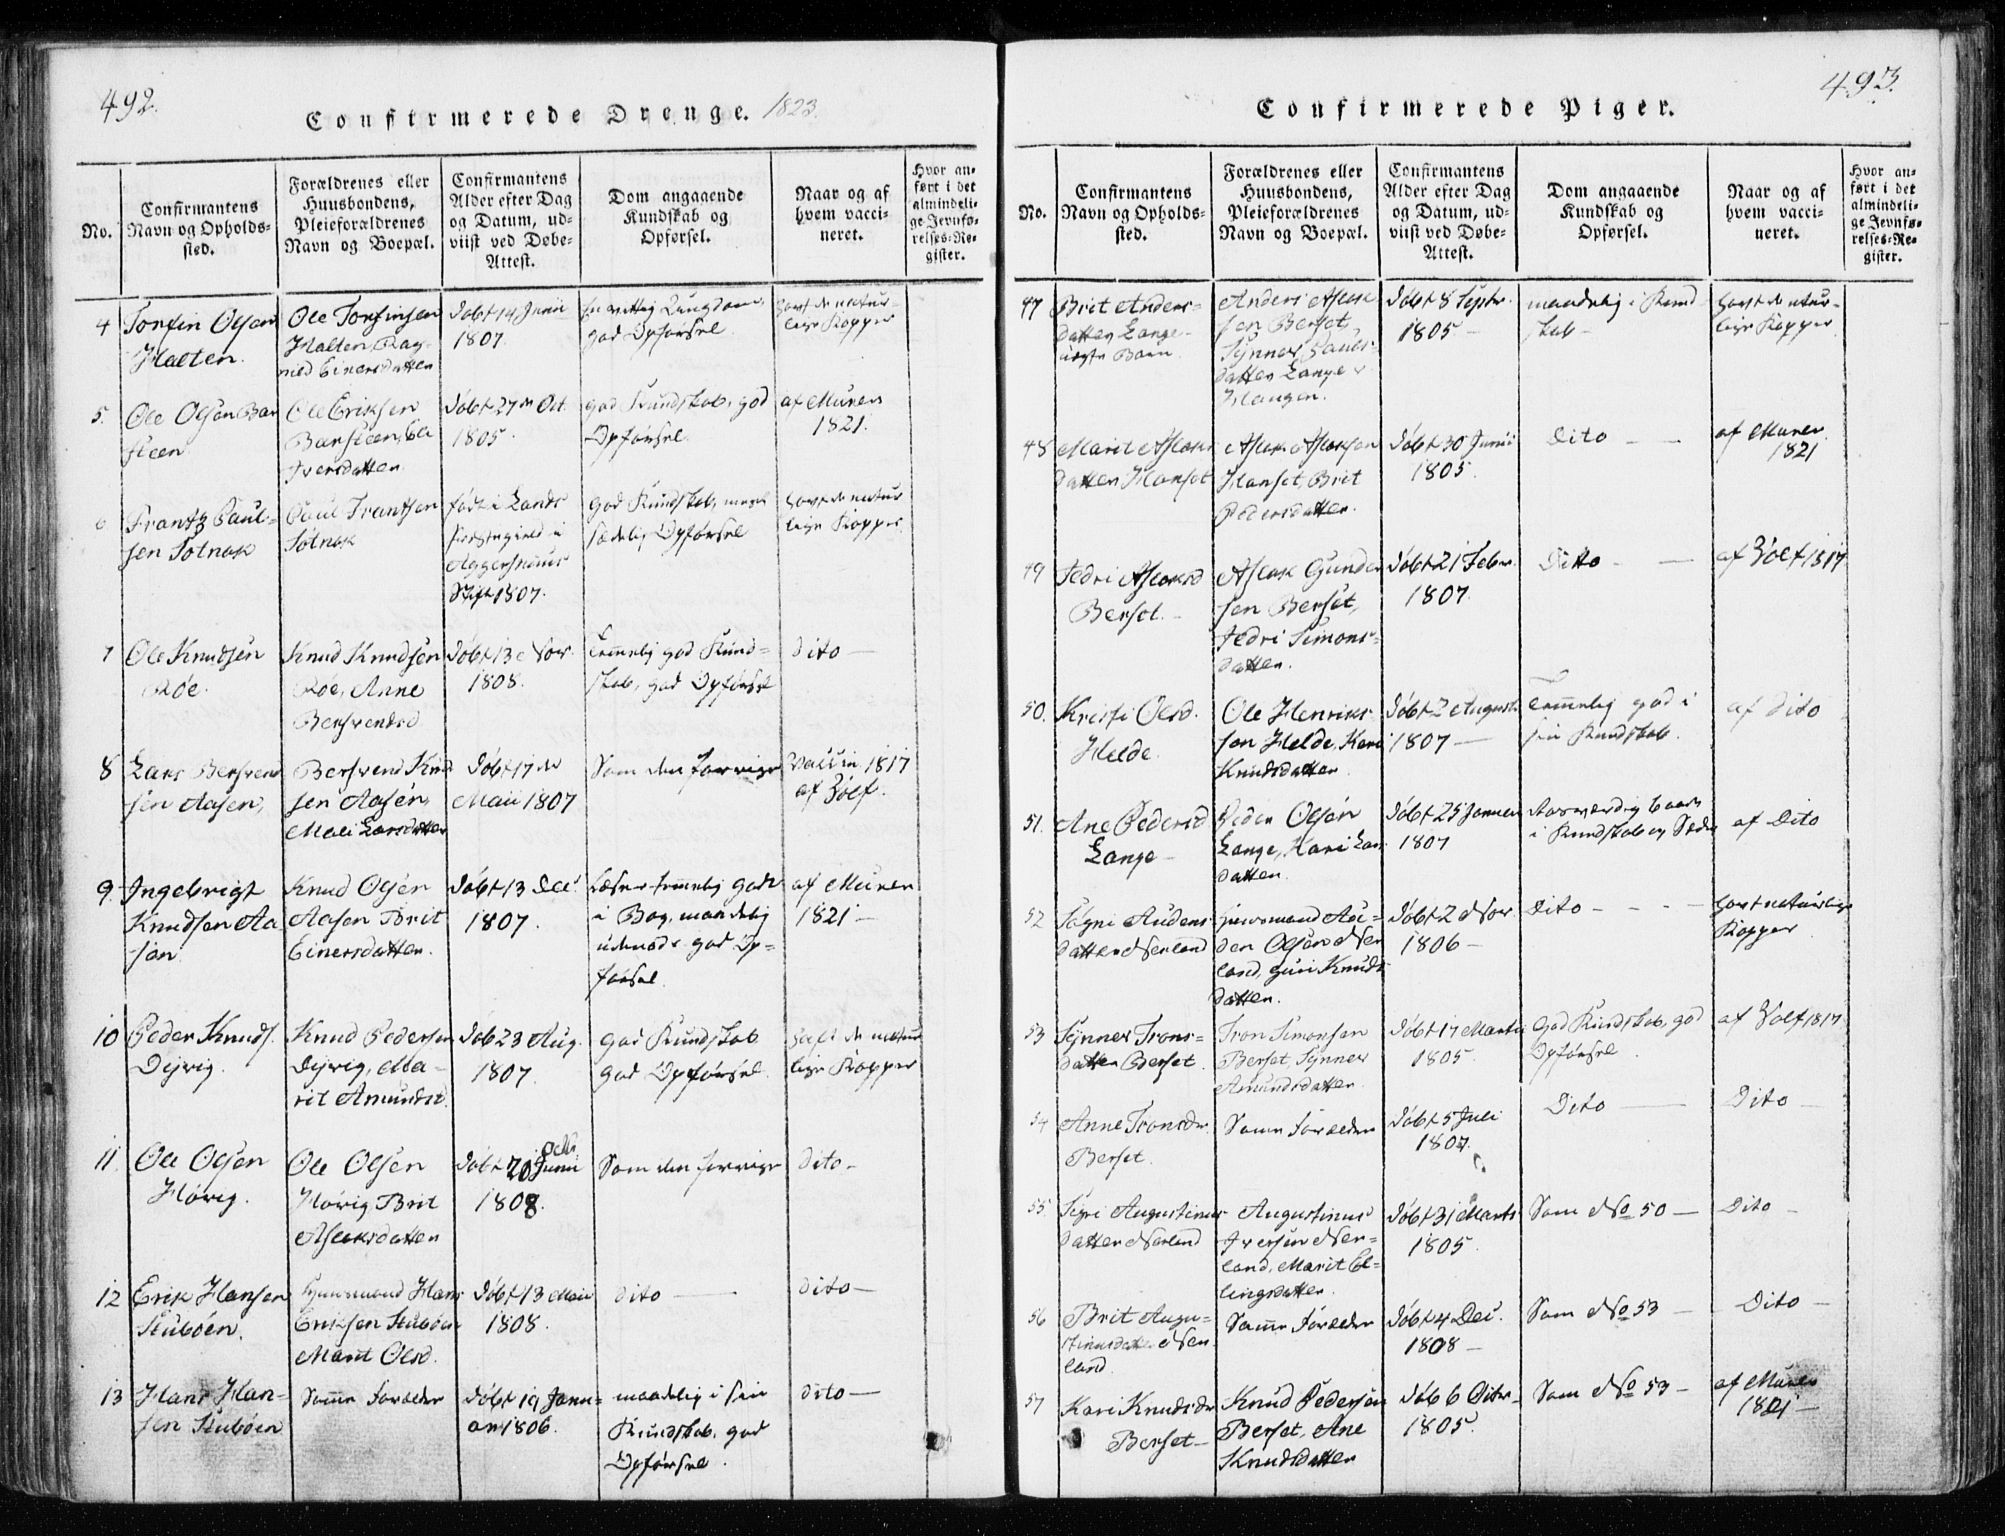 492.
Confirmerede Drenge. 1823.
No.
Confirmantens
Navn og Opholds-
sted.
Forældrenes eller
Huusbondens,
Pleieforældrenes
Navn og Boepæl.
Confirmantens
Alder efter Dag
og Datum, ud-
viist ved Døbe-
Attest.
Dom angaaende
Kundskab og
Opførsel.
Naar og af
hvem vacci-
neret.
Hvor an-
ført i det
almindeli-
ge Jevnfø-
relses-Re-
gister.
4
Torfin Olsen
Halten.
Ole Torfinsen
Halten, Rag-
nild Einersdatter
Døbt 14 Junii
1807.
god Opførsel.
havt de natur-
lige Kopper
5.
Ole Olsen Bar
steen
Ole Eriksen
Barsteen,
Iversdatter
Døbt 27de Oct.
1805.
god Kundskab, god
Opførsel.
af Muren
1821.
6
Frantz Paul-
sen Solnok
Paul Frantzen
Solnok
født i Lands
Præstegield i
Aggershuus
Stift 1807.
god Kundskab,
sædelig Opførsel
havt de natur
lige Kopper
7
Ole Knudsen
Röe.
Knud Knudsen
Röe, Anne
Bersvendsd
Døbt 13 Nov.
1808.
Temelig god Kund-
skab, god Opførsel
Dito —
8
Lars Bersvend
sen Aasen,
Bersvend Knud
sen Aasen,
Mali Larsdatter
Døbt 17de
Maii 1807
Som den forrige
Vaccin. 1817
af Wolf.
9.
Ingebrigt
Knudsen Aa
sen
Knud Olsen
Aasen Brit
Einersdatter.
Døbt 13 Dec.
1807.
Læser temelig godt
i Bog, maadelig
udenad, god Op-
førsel.
af Muren
1821 —
10
Peder Knuds.
Dyrvig.
Knud Pedersen
Dyrvig, Ma-
rit Amundsd.
Døb 23 Aug.
1807.
god Kundskab
god Opførsel.
havt de natur
lige Kopper
11.
Ole Olsen
Hovig.
Ole Olsen
Hovig, Brit
Aslaksdatter
Døbt 20 Junii
1808.
Som den forrige
Dito —
12
Erik Hansen
Stuböen.
Huusmand Hans
Eriksen Stuböen
Marit Olsd.
Døbt 13 Maii
1808.
Dito —
Dito —
13
Hans Han-
sen Stuböen
Same Forældre
Døbt 19 Janu-
ar 1806.
maadelig i sin
Kundskab, god
Opførsel.
Dito —
493.
Confirmerede Piger.
No.
Confirmantens
Navn og Opholds-
sted.
Forældrenes eller
Huusbondens,
Pleieforældrenes
Navn og Boepæl.
Confirmantens
Alder efter Dag
og Datum, ud-
viist ved Døbe-
Attest.
Dom angaaende
Kundskab og
Opførsel.
Naar og af
hvem vacci-
neret.
Hvor an-
ført i det
almindeli-
ge Jevnfø-
relses-Re-
gister.
47
Brit Anders-
datter Lange
uægte Barn.
Anders Aslak
sen Berset,
Synnev Pauls-
datter Lange
Haugen.
Døbt 8 Septr.
1805 —
maadelig i Kund
skab —
havt de natur-
lige Kopper
48
Marit Aslaks
datter Hanset
Aslak Aslaksen
Hanset, Brit
Pedersdatter.
Døbt 30 Junii
1805.
Dito — —
af Muren
1821
49
Sedri Aslaksd
Berset. —
Aslak Gunder
sen Berset,
Sedri Simons-
datter.
Døbt 21 Febr.
1807.
Ditto — —
af Wolf 1817
50.
Kristi Olsd.
Helde.
Ole Henriks
sen Helde, Kari
Knudsdatter
Døbt 2 August
1807 —
Temelig god i
sin Kundskab.
af Dito
51.
Ane Pedersd
Lange —
Peder Olsen
Lange, Kari Lars
datter.
Døbt 25 Januar
1807
Roesværdig baade
i Kundskab og Sæder
af Dito
52
Signi Audens
datter Nerland
Huusmand Au-
den Olsen Ner
land, Guri Knuds
datter.
Døbt 2 Nov
1806 —
Dito — — —
havt naturlige
Kopper
53
Synnev Trons-
datter Berset
Tron Simonsen
Berset, Synnev
Amundsdatter
Døbt 17 Martii
1805.
God Kundskab, god
Opførsel
af Wolf 1817
54
Anne Tronsdr
Berset.
Same Forældre
Døbt 5 Juli
1807.
Dito —
Dito —
55
Sigri Augustinus
datter Nerland
Augustinus
Iversen Ner-
land, Marit El-
lingsdatter.
Døbt 31 Marts
1805.
Som No 50 —
Dito —
56
Brit Augu-
stinusdatter Ner
land.
Same Forældre
Døbt 4 Dec.
1808 —
Som No 53 —
Dito —
57
Kari Knudsdr
Berset —
Knud Pedersen
Berset, Ane
Knudsdatter
Døb 6 Octr.
1805.
Som No 53 —
af Muren
1821 —